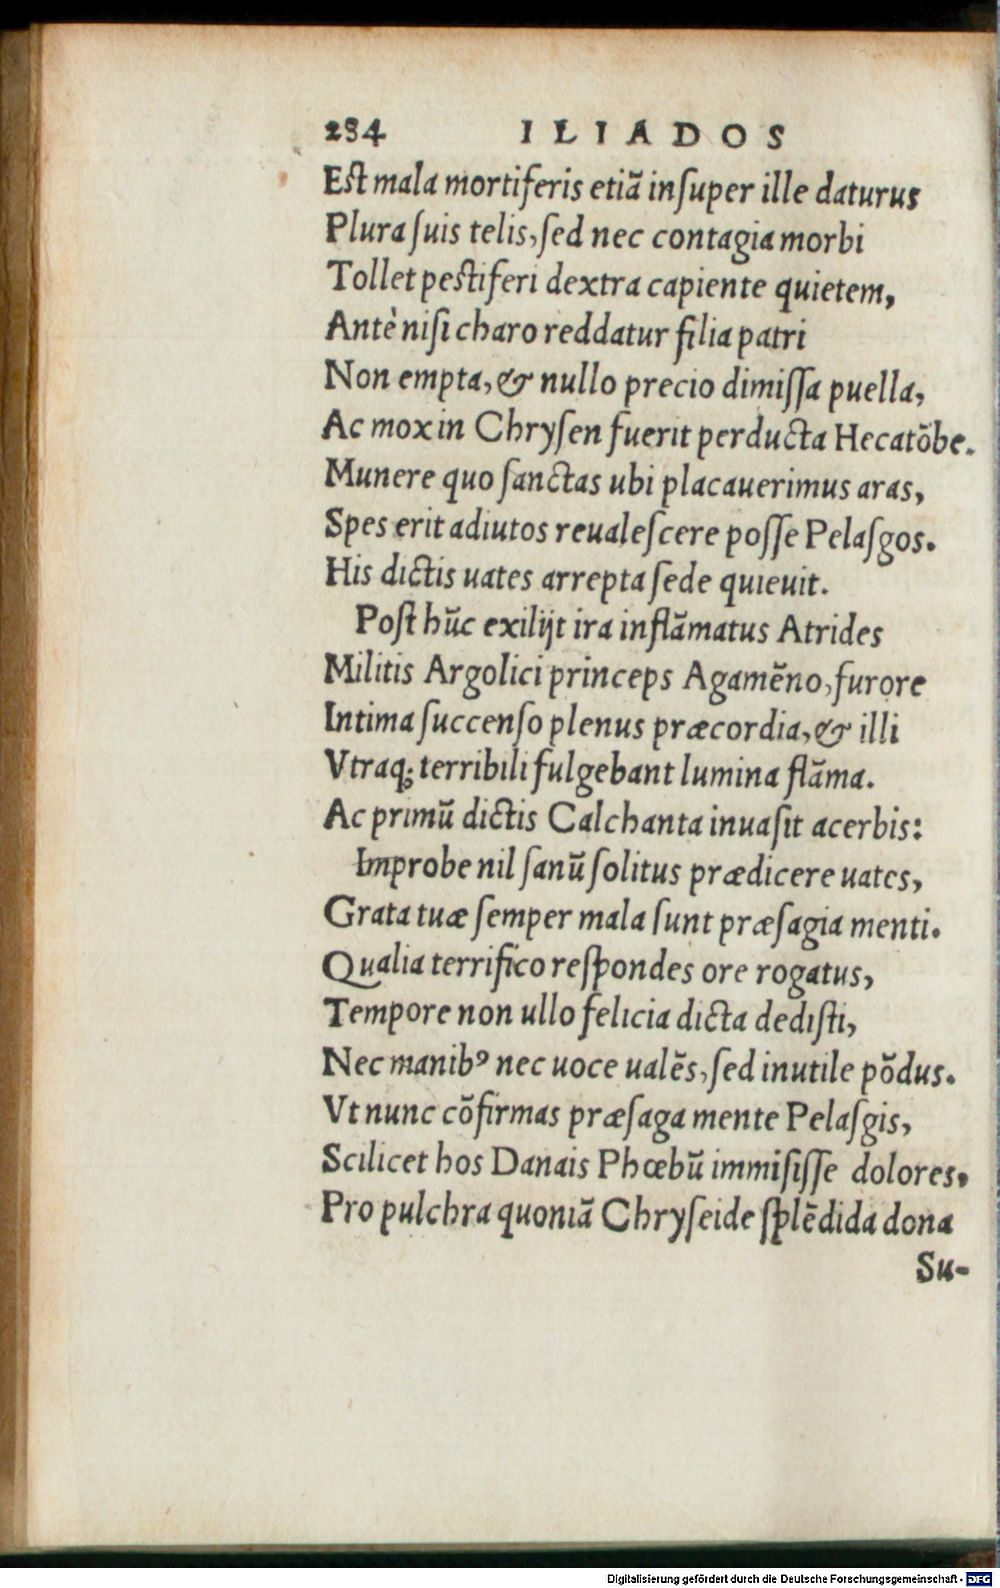 284 ILIADOS
Est mala mortiferis etiā inſuper ille daturus
Plura ſuis telis, ſed nec contagia morbi
Tollet peſtiferi dextra capiente quietem,
Antè niſi charo reddatur filia patri
Non empta, & nullo precio dimiſſa puella,
Ac mox in Chryſen fuerit perducta Hecatōbe.
Munere quo ſanctas ubi placauerimus aras,
Spes erit adiutos reualeſcere poſſe Pelaſgos.
His dictis uates arrepta ſede quieuit.
Poſt hūc exilijt ira inflāmatus Atrides
Militis Argolici princeps Agamēno, furore
Intima ſuccenſo plenus præcordia, & illi
Vtraq; terribili fulgebant lumina flāma.
Ac primū dictis Calchanta inuaſit acerbis:
Improbe nil ſanū ſolitus prædicere uates,
Grata tuæ ſemper mala ſunt præſagia menti.
Qualia terrifico reſpondes ore rogatus,
Tempore non ullo felicia dicta dediſti,
Nec manibꝰ nec uoce ualēs, ſed inutile pōdus.
Vt nunc cōfirmas præſaga mente Pelaſgis,
Scilicet hos Danais Phœbū immiſiſſe dolores,
Pro pulchra quoniā Chryſeide ſplēdida dona
Su-
Digitalisierung gefördert durch die Deutsche Forschungsgemeinschaft - DFG